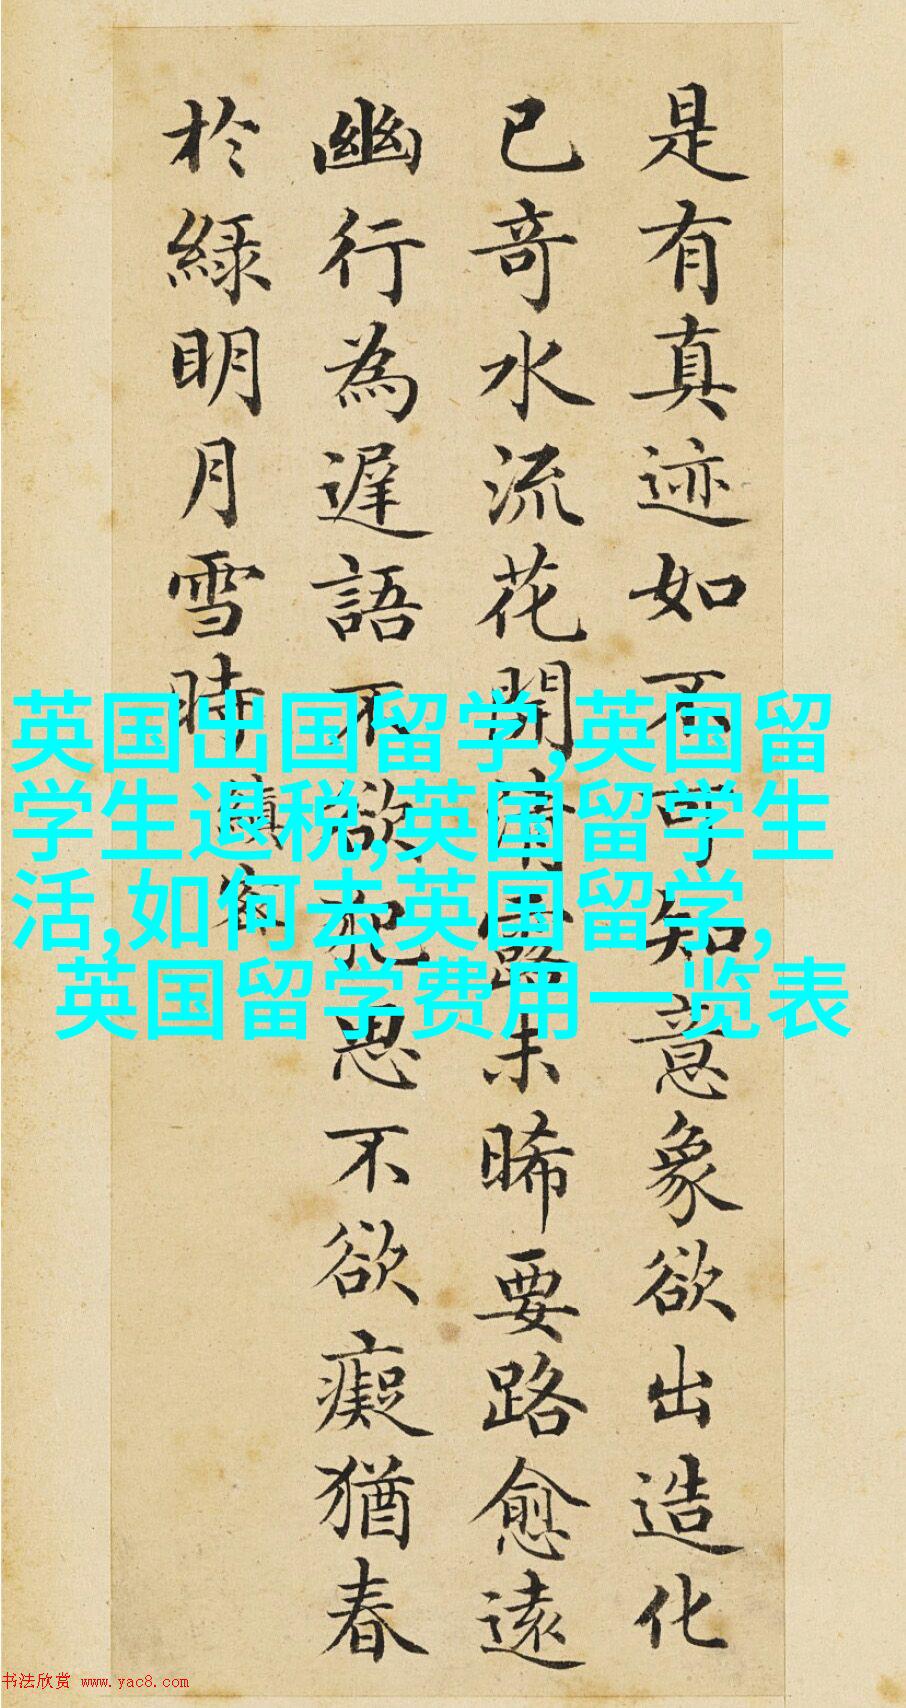 是有真迹如不可知意象欲出造化
已奇水流花開清露未晞要路愈遠
幽行為遲語不欲犯思不欲癡猶春
於綠明月雪時
英国出国留学,英国留
学生退税,英国留学生
活,如何去英国留学,
英国留学费用一览表
书法欣赏 www.yac8.com